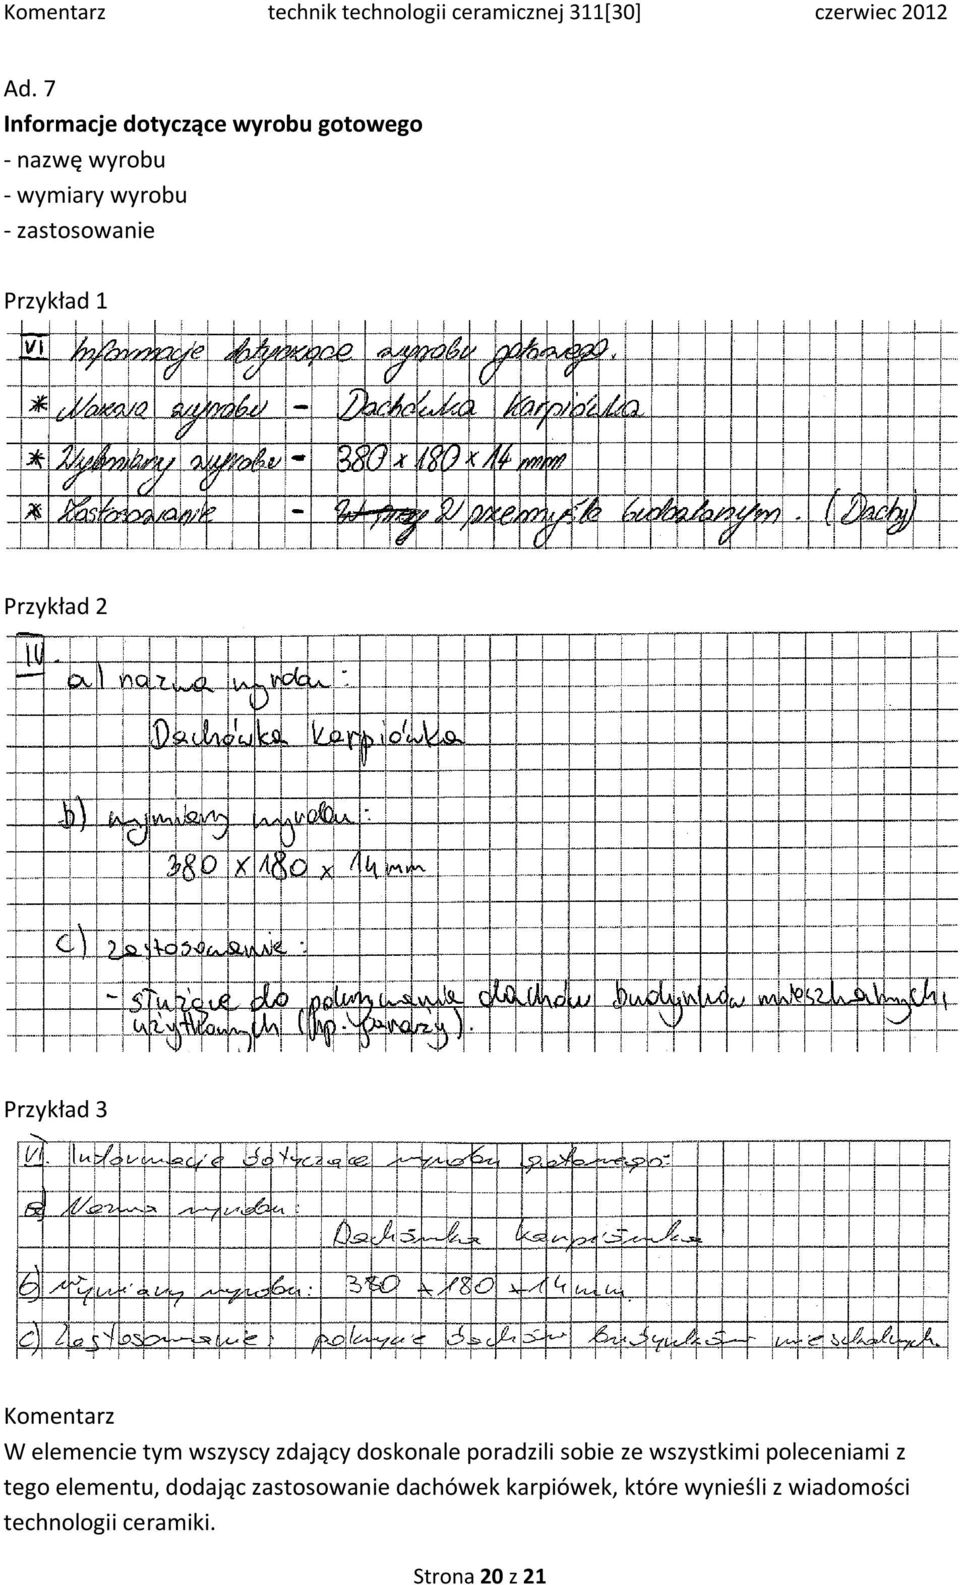 Komentarz technik technologii ceramicznej 311[30] czerwiec 2012
Ad. 7
Informacje dotyczące wyrobu gotowego
- nazwę wyrobu
- wymiary wyrobu
- zastosowanie
Przykład 1
VI Informacje dotyczące wyrobu gotowego.
* Nazwa wyrobu - Dachówka Karpiówka
* Wymiary wyrobu - 380 x 180 x 14 mm
* Zastosowanie - W przemyśle budowlanym. (Dachy)
Przykład 2
IV.
a) nazwa wyrobu:
Dachówka Karpiówka
b) wymiary wyrobu:
380 x 180 x 14 mm
c) zastosowanie:
- służące do pokrywania dachów budynków mieszkalnych,
użytkowych (np. garaży).
Przykład 3
VI. Informacje dotyczące wyrobu gotowego:
a) Nazwa wyrobu:
Dachówka karpiówka
b) Wymiary wyrobu: 380 x 180 x 14 mm.
c) Zastosowanie: pokrycie dachów budynków mieszkalnych.
Komentarz
W elemencie tym wszyscy zdający doskonale poradzili sobie ze wszystkimi poleceniami z
tego elementu, dodając zastosowanie dachówek karpiówek, które wynieśli z wiadomości
technologii ceramiki.
Strona 20 z 21